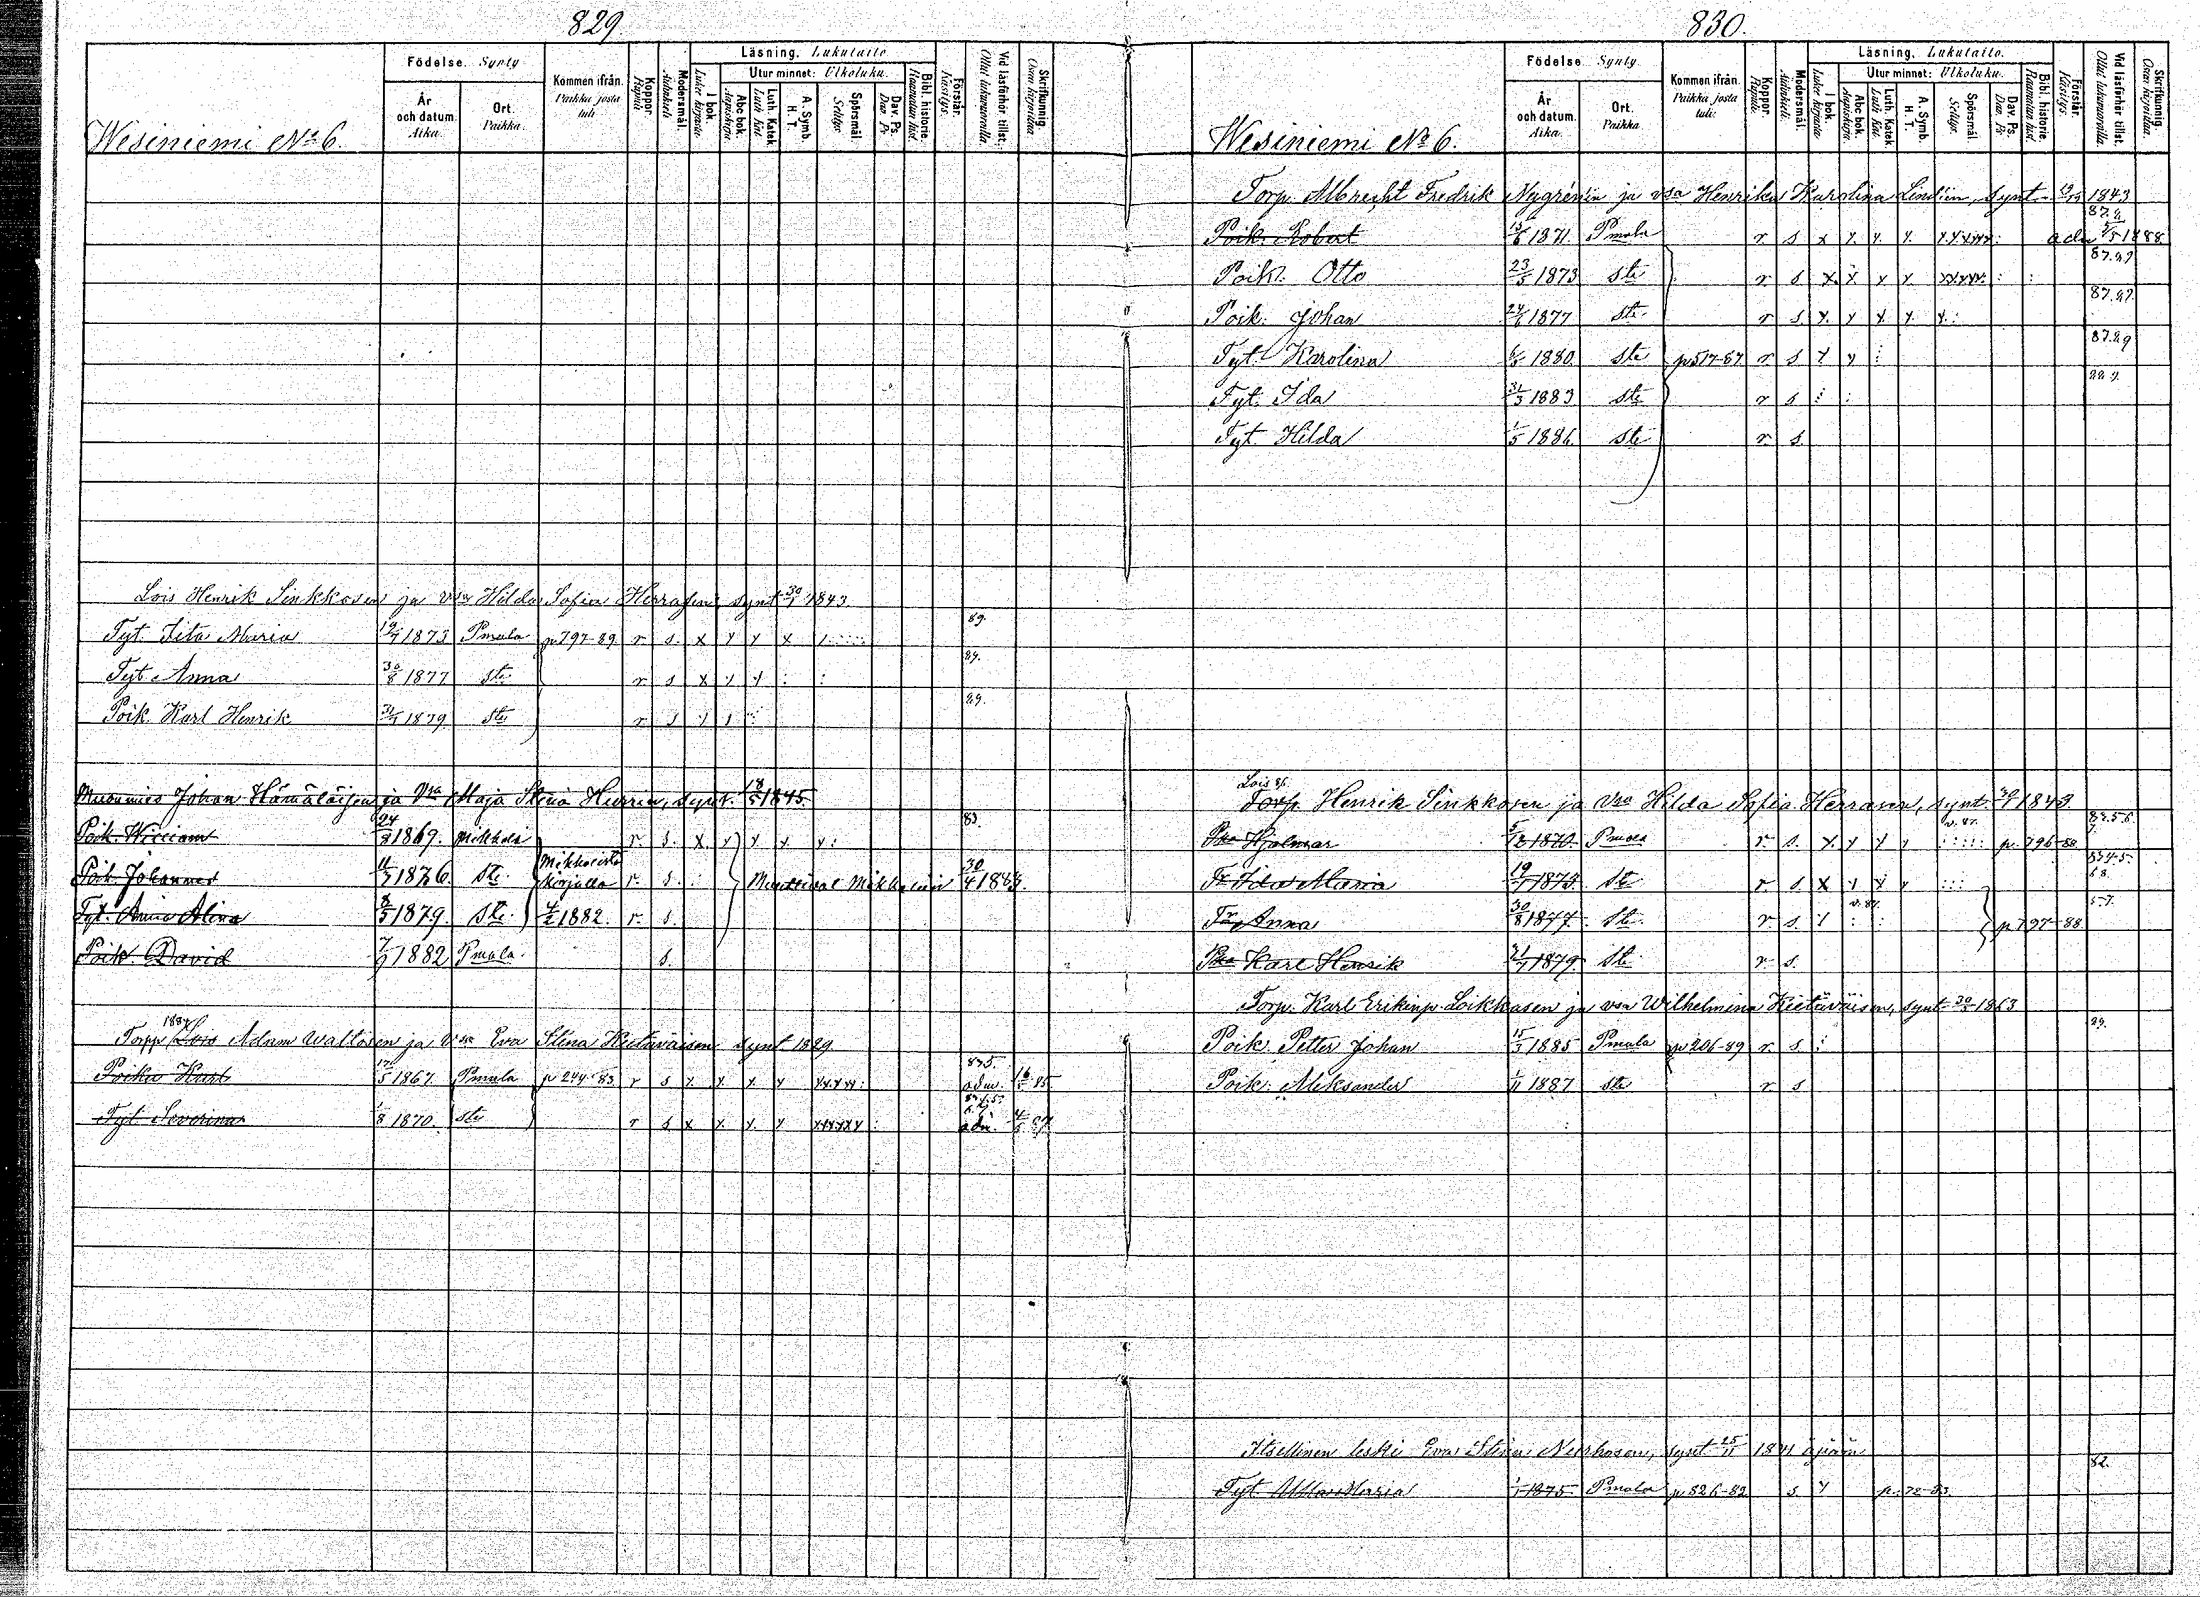 829
Wesiniemi No 6.
Födelse. Synty
År och datum. Aika.
Ort. Paikka.
Kommen ifrån. Paikka josta tuli
Koppor. Rupuli
Modersmål. Äidinkieli
Läsning. Lukutaito
I bok.
Utur minnet: Ulkoluku.
Abc bok.
Luth. Katek.
A. Symb. H. T.
Spörsmål.
Dav. Ps.
Bibl. historie.
Förstår. Käsitys.
Vid läsförhör tillst.
Skrifkunnig.
Lois Henrik Sinkkosen ja vsa Hilda Sofia Herrasen, synt 30/1 1843
Tyt. Iita Maria 19/7 1873 Pmala p 797-89. r s. x y y x 89.
Tyt Anna 30/8 1877 ste r s x y y : : 89.
Poik. Karl Henrik 31/7 1879 ste r s 89.
Muonmies Johan Hämäläisen ja Vsa Maja Stina Hurrin, synt. 18/5 1845.
Poik. William 24/8 1869. Mikkeli r s. x. y y x y: 83.
Poik. Johannes 11/7 1876. ste. Mikkelistä kirjalla r. s. : Muuttivat Mikkeliin 30/4 1883.
Tyt. Anna Alina 8/5 1879. ste. 4/2 1882. r. s.
Poik. David 7/9 1882 Pmala. s.
Torpp 1884 Lois Adam Waltosen ja vsa Eva Stina Kietäväisen synt 1829
Poika Karl 17/5 1867. Pmala p 244-83 r s y. y. y. y yyyyy: 835. adm. 16/5 85.
Tyt. Severina 1/8 1870. ste r s. x y. y. y xyxyxy : adm. 4/5 87
830.
Wesiniemi No 6.
Födelse. Synty.
År och datum. Aika.
Ort. Paikka
Kommen ifrån. Paikka josta tuli:
Koppor.
Modersmål.
Läsning. Lukutaito.
I bok.
Utur minnet: Ulkoluku.
Abc bok.
Luth Katek
A. Symb. H. T.
Spörsmål.
Dav. Ps.
Bibl. historie.
Förstår. Käsitys.
Vid läsförhör tillst.
Skrifkunnig.
Torp. Albrecht Fredrik Nygrénin ja vsa Henrika Karolina Lindin, synt. 1843
Poik. Robert 1871. Pmala r s x y. y. y. adm 1888.
Poik. Otto 23/5 1873 ste r s x. x y y xxyyy. : : 87.89
Poik. Johan 24/6 1877 ste. r s. y. y x y y. : 87.89.
Tyt. Karolina 1880. ste p 517-87 r s y y : 87.89
Tyt. Ida 31/3 1883 ste r s : :
Tyt. Hilda 1/5 1886. ste r. s.
Lois
Torp. Henrik Sinkkosen ja vsa Hilda Sofia Herrasen, synt. 30/1 1843.
Pka Hjalmar 1870. Pmala r. s. y. y y y p. 796-88
Tr Ida Maria 19/7 1873. ste r s x y y y
Tr Anna 30/8 1877. ste r. s. p 797-88
Pka Karl Henrik 31/7 1879. ste r s.
Torp. Karl Erikinp. Loikkasen ja vsa Wilhelmina Kietäväisen, synt. 30/5 1863
Poik. Petter Johan 15/3 1885 Pmala p 206-89 r. s :
Poik: Aleksander 1/11 1887 ste r s
Itsellinen leski Eva Stina synt 25/11 1841
Tyt. Maria 1/1 1875 Pmala p 826-82 s. y p. 72-83 82.